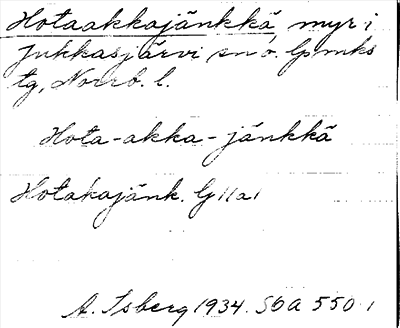 Hotaakkajänkkä myr i
Jukkasjärvi sn o. Lpmks
tg, Norrb. l.
Hota-akka-jänkkä
Hotakajänk. G 11a1
A. Isberg 1934. SOA 550:1